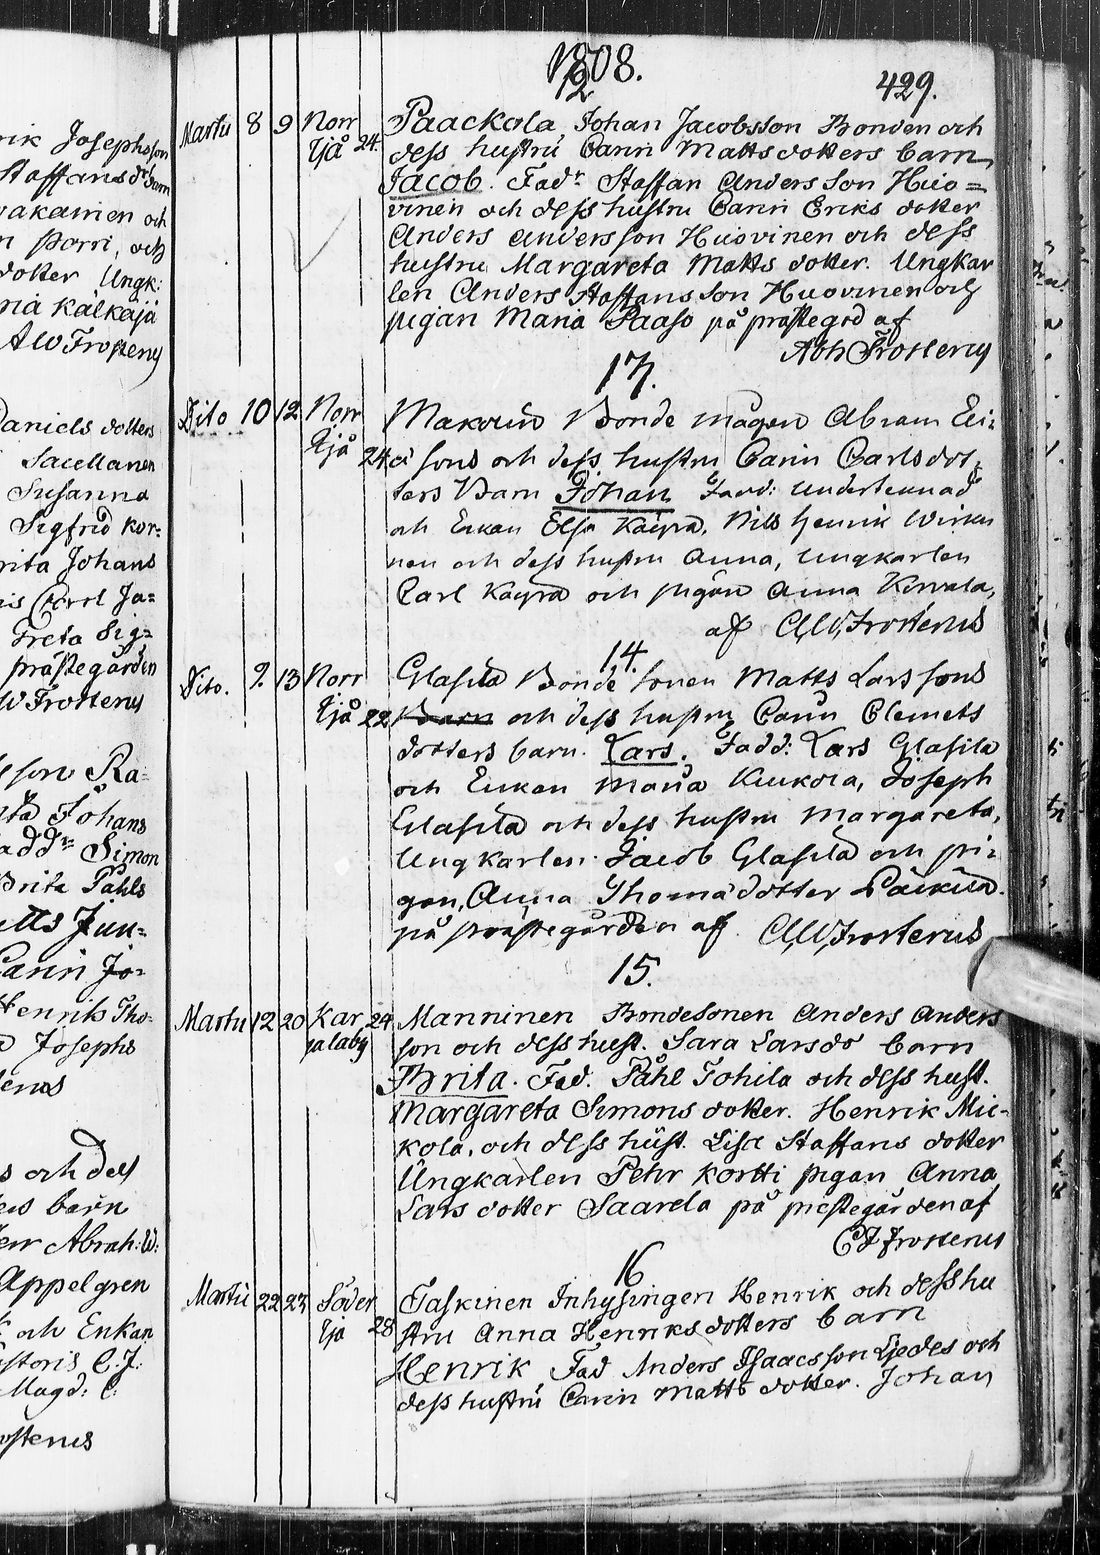 rik Josephsson
Staffansdr barn
akainen och
n Porri, och
dotter Ungk:
ria Kälkäjä
AW Frosterus
Daniels dotters
Sacellanen
Susanna
Sigfrid Kor=
rita Johans
is Carl Ja=
Greta Sig=
prästegården
W Frosterus
son Ra=
ta Johans
addr Simon
Brita Påhls
atts Jun=
Carin Jo=
Henrik Tho=
Josephs
terus
s och dess
ers barn
err Abrah: W:
Appelgren
och Enkan
storis C: J:
Magd: C:
osterus
1808.
429.
12
Martii 8 9 Norr Ijå 24.
Paackola Johan Jacobsson Bonden och
dess hustru Carin Mattsdotters barn
Jacob. Fadr Staffan Andersson Huo=
vinen och dess hustru Carin Eriks dotter
Anders Andersson Huovinen och dess
hustru Margareta Matts dotter. Ungkar
len Anders Staffansson Huovinen och
pigan Maria Paaso på prästegrd af
Abh Frosterus
13.
Dito 10 12 Norr Ijå 24
Bonde mågen Abram
sons och dess hustru Carin Carlsdot=
ters Barn Johan Fadd: undertecknad
och Enkan Elsa Nils Henrik
nen och dess hustru Anna, Ungkarlen
Carl och pigan Anna
af AW Frosterus
14.
Dito. 9. 13 Norr Ijå 22
Glasila Bonde sonen Matts Larssons
Barn och dess hustru Carin Clemets
dotters barn. Lars. Fadd: Lars Glasila
och Enkan Maria Kuukola, Joseph
Glasila och dess hustru Margareta,
Ungkarlen Jacob Glasila och pi=
gan, Anna Thomædotter
på prästegården af AW Frosterus
15.
Martii 12 20 Kar jalaby 24
Manninen Bondesonen Anders Anders
son och dess hust. Sara Larsdo barn
Brita. Fad. Påhl Tohila och dess hust.
Margareta Simons dotter. Henrik Mic=
kola, och dess hust. Lisa Staffans dotter
Ungkarlen Pehr Kortti pigan Anna
Lars dotter Saarela på prestegården af
CJ Frosterus
16
Martii 22 23 Söder Ijå 28
Taskinen Inhysingen Henrik och dess hu
stru Anna Henriksdotters barn
Henrik Fad Anders Isaacsson Ljedes och
dess hustru Carin Matts dotter. Johan